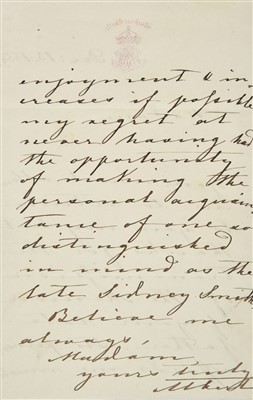 enjoyment & in-
creases if possible
my regret at
never having had
the opportunity
of making the
personal acquain
tance of one so
distinguished
in mind as the
late Sidney Smith
Believe me
always,
Madam,
yours truly
Albert